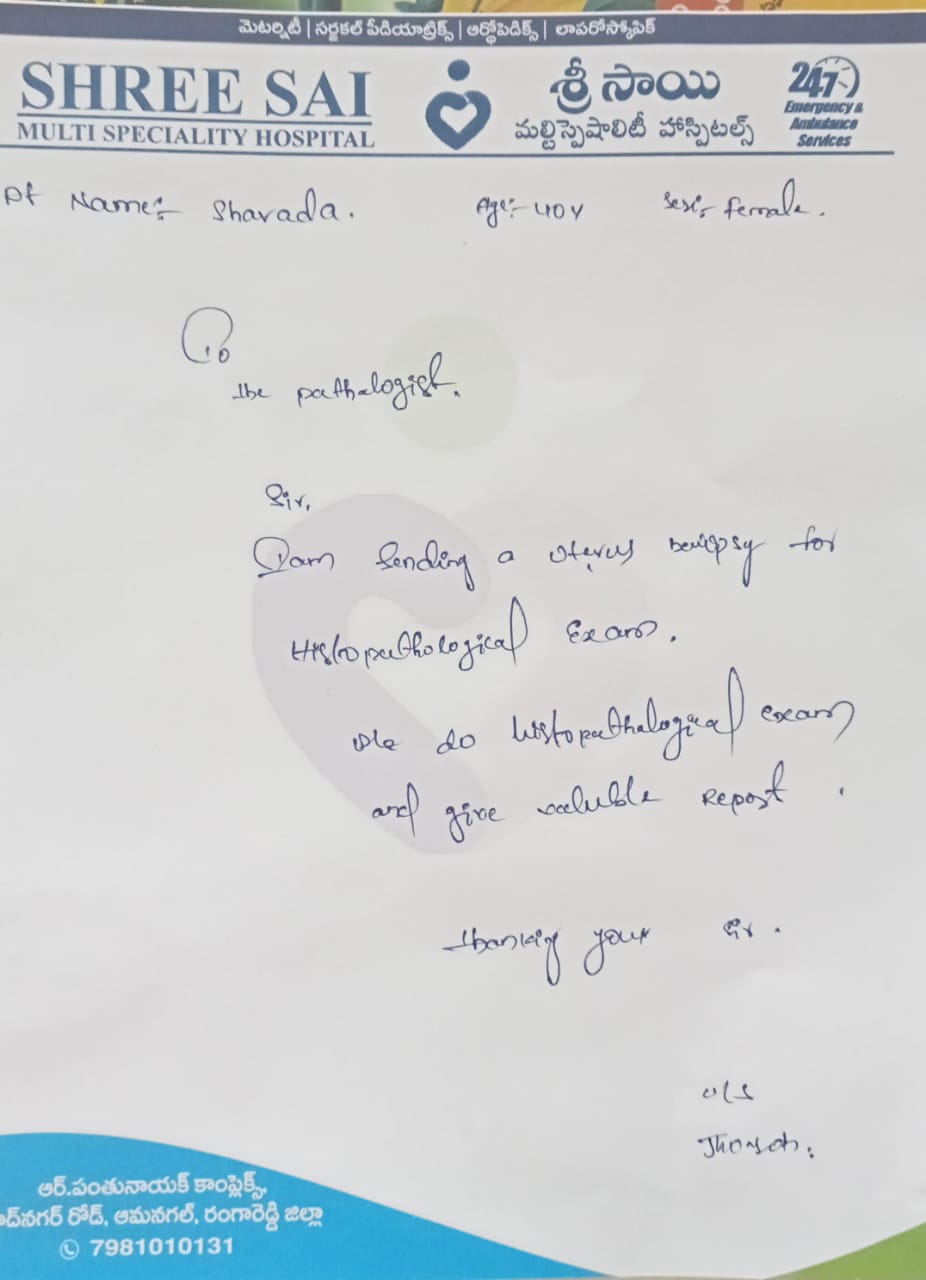 మెటర్నిటీ | సర్జికల్ పీడియాట్రిక్స్ | ఆర్థోపెడిక్స్ | లాపరోస్కోపిక్
SHREE SAI
MULTI SPECIALITY HOSPITAL
శ్రీ సాయి
మల్టిస్పెషాలిటీ హాస్పిటల్స్
247
Emergency &
Ambulance
Services
Pt Name:- Sharada. Age:- 40Y Sex:- female.
To
The pathalogist.
Sir,
I am sending a uterus for
Histopathological Exam.
do histopathalogical exam
and give valuble Report.
Thanking your sir.
ఆర్.పంతునాయక్ కాంప్లెక్స్,
రోడ్, ఆమనగల్, రంగారెడ్డి జిల్లా
7981010131